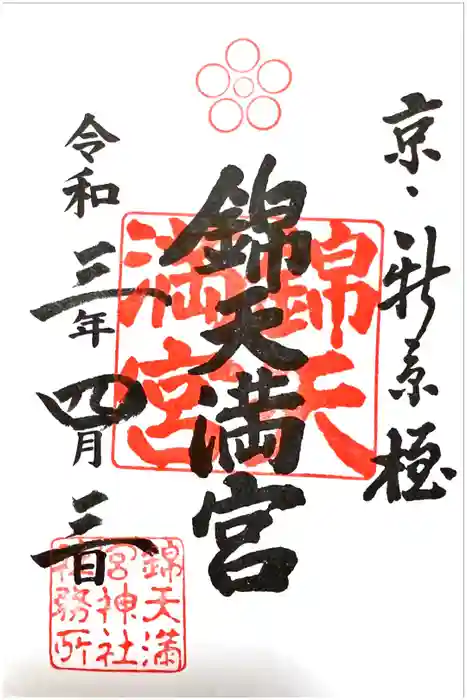 京、新京極
錦天満宮
錦天
満宮
令和三年四月三日
錦天満
宮神社
社務所